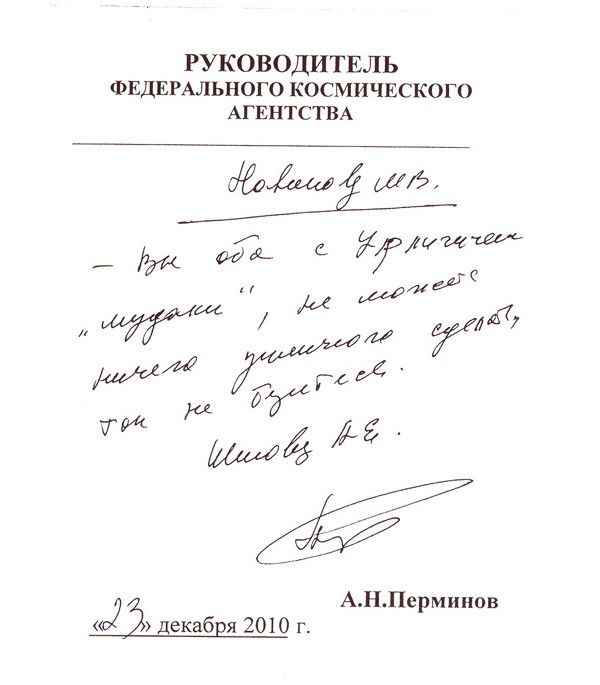 РУКОВОДИТЕЛЬ
ФЕДЕРАЛЬНОГО КОСМИЧЕСКОГО
АГЕНТСТВА
М.В.
– Вы оба с
„мудаки“, не можете
ничего приличного сделать,
так не
Шилову А.Е.
А.Н.Перминов
«23» декабря 2010 г.